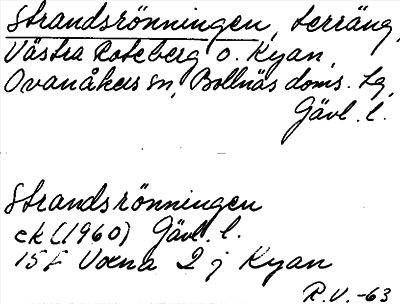 Strandsrönningen, terräng,
Västra Roteberg o. Kyan,
Ovanåkers sn, Bollnäs doms. tg,
Gävl. l.
Strandsrönningen
ek (1960) Gävl. l.
15F Voxna 2 j Kyan
R.V. -63